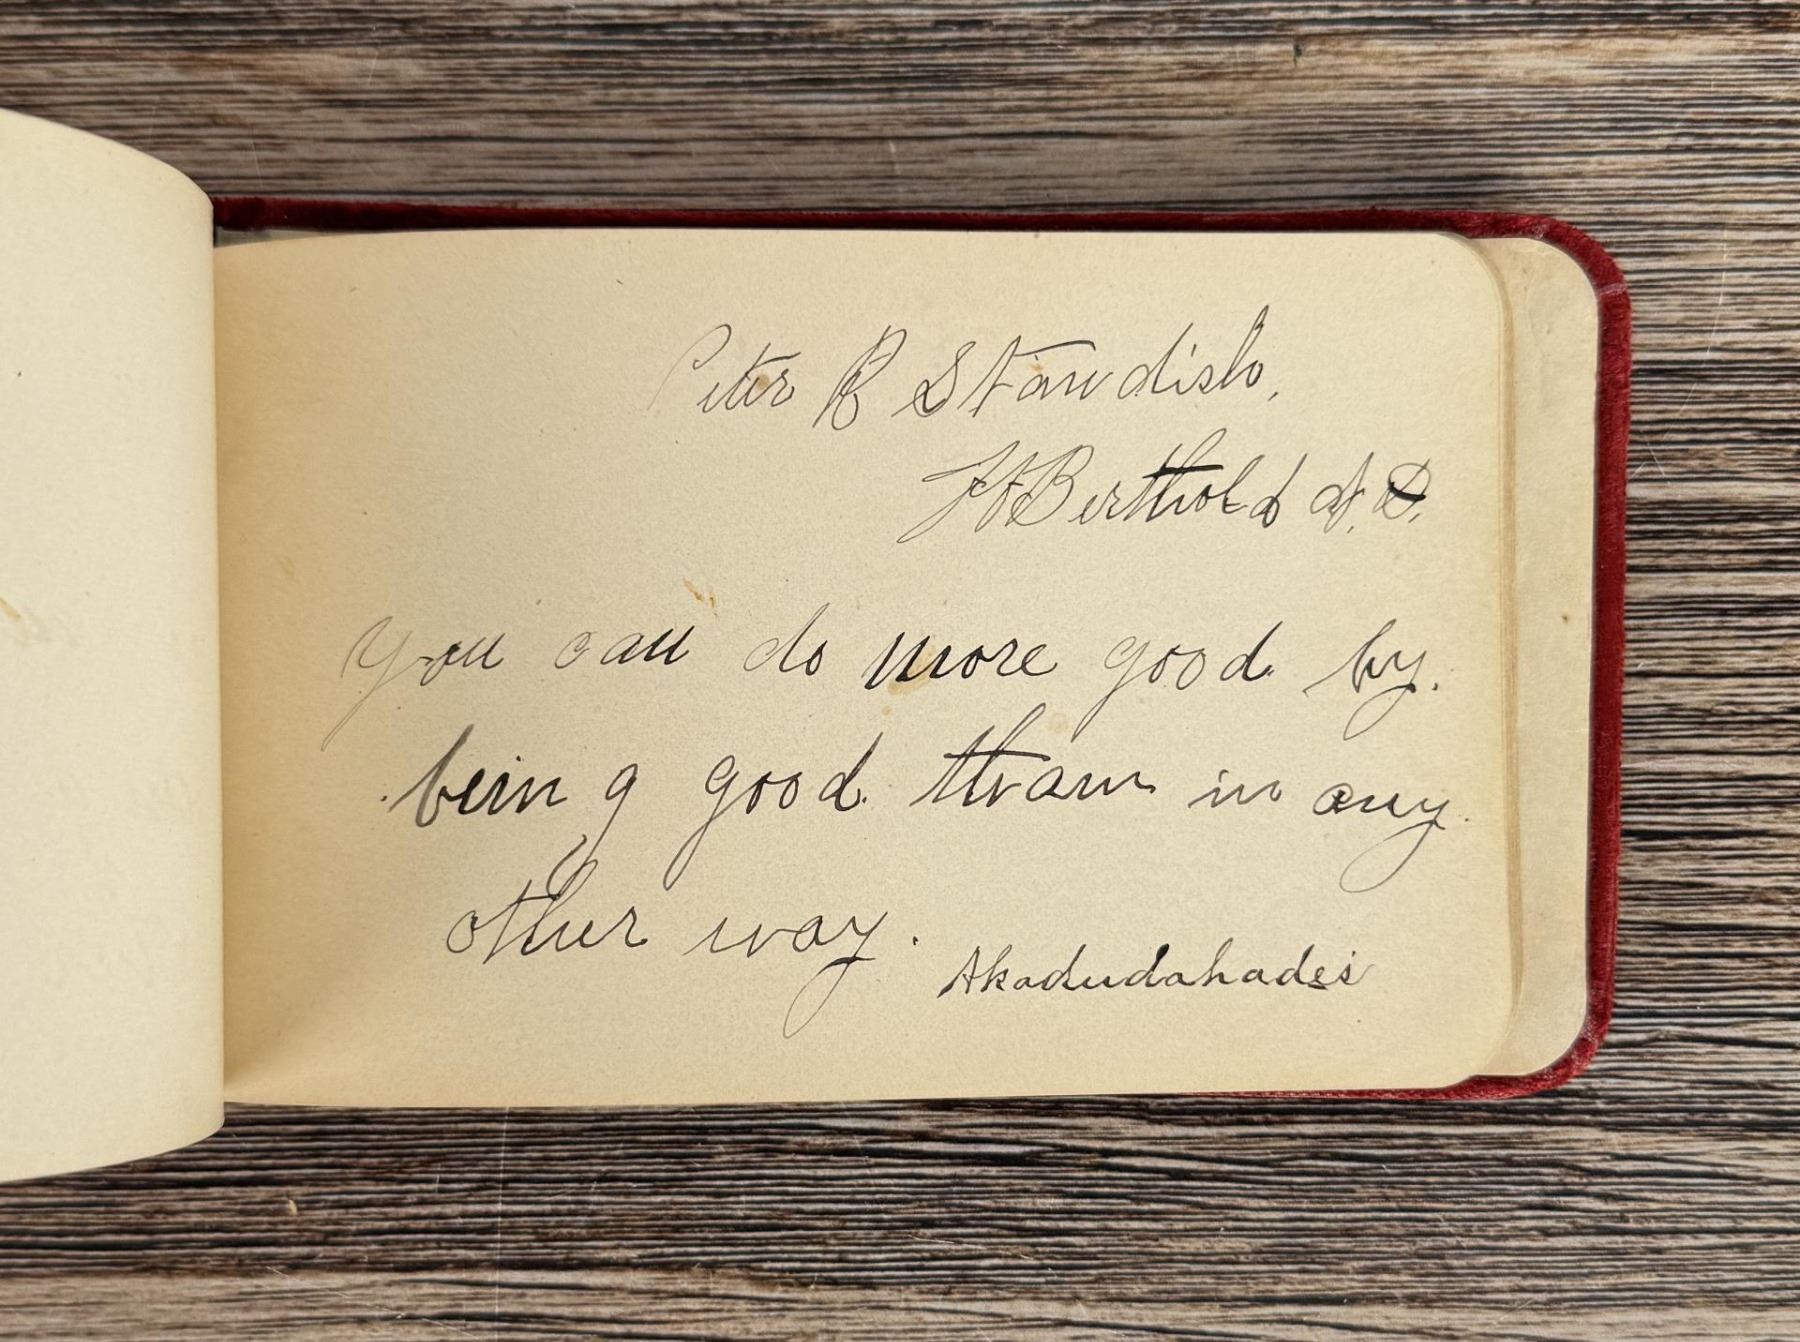 Peter B Standish,
Ft Berthold N. D.
you can do more good by.
being good than in any
other way.
Akadudahades